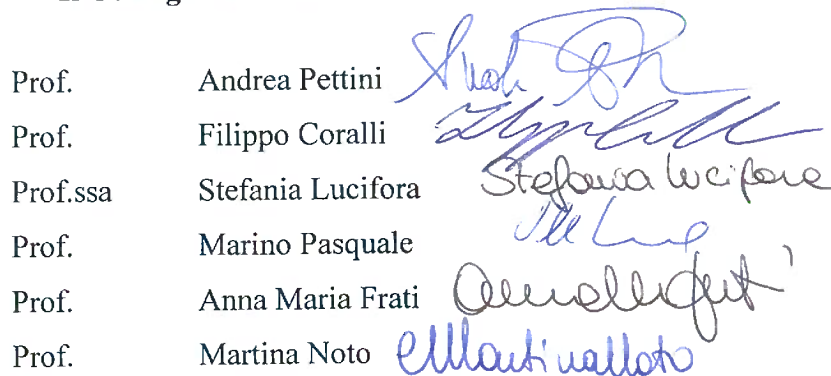 Prof. Andrea Pettini
Prof. Filippo Coralli
Prof.ssa Stefania Lucifora Stefania Lucifora
Prof. Marino Pasquale
Prof. Anna Maria Frati
Prof. Martina Noto Martina Noto